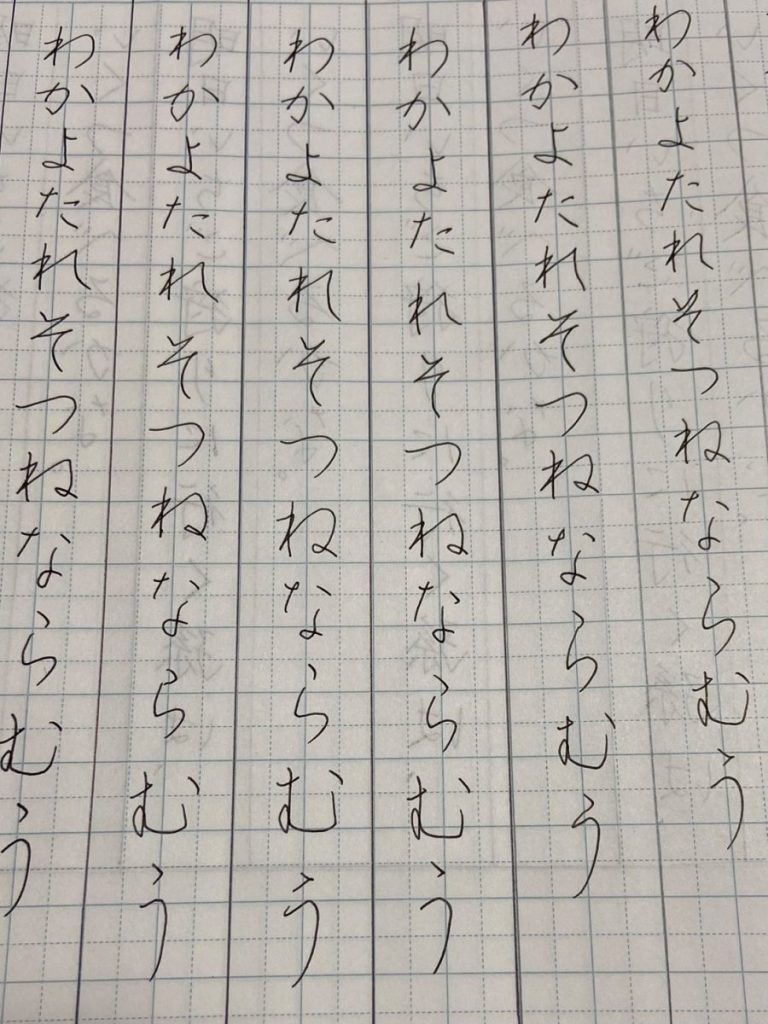 わかよたれそつねならむう
わかよたれそつねならむう
わかよたれそつねならむう
わかよたれそつねならむう
わかよたれそつねならむう
わかよたれそつねならむう